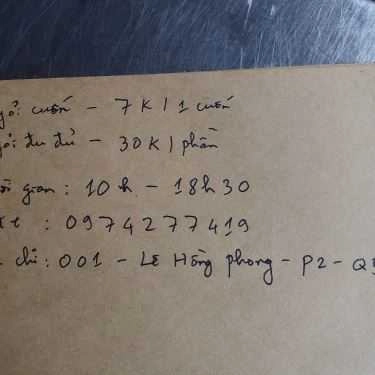 gỏi cuốn - 7K/1 cuốn
gỏi đu đủ - 30K/phần
gian: 10h - 18h30
: 0974277419
chỉ: 001 - Lê Hồng phong - P2 - Q5